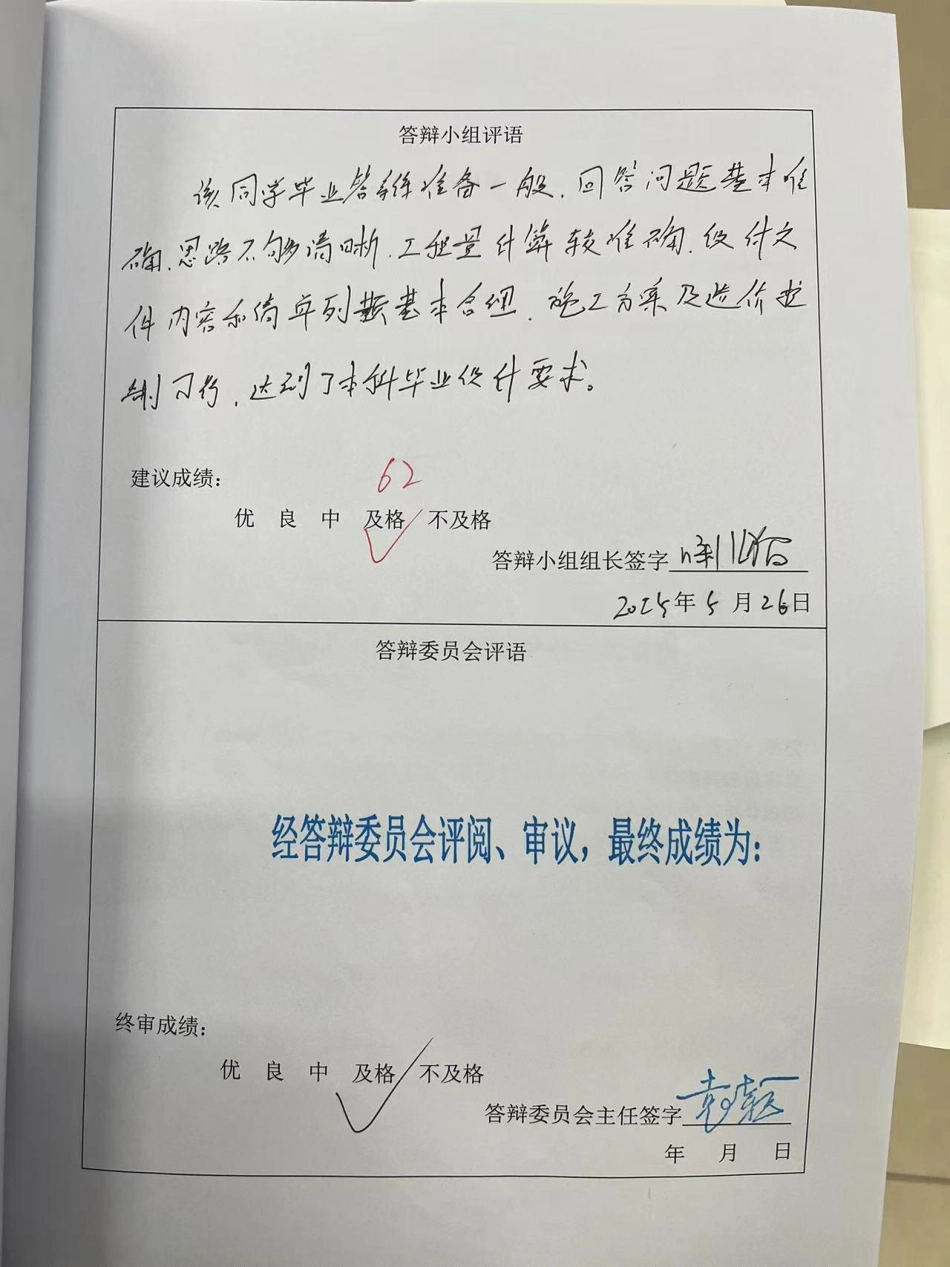 答辩小组评语
该同学毕业答辩准备一般，回答问题基本准
确，思路不够清晰，工程量计算较准确，设计文
件内容和清单列载基本合理，施工方案及造价控
制可行，达到了本科毕业设计要求。
建议成绩：
62
优 良 中 及格 不及格
答辩小组组长签字
2025年 5 月 26日
答辩委员会评语
经答辩委员会评阅、审议，最终成绩为：
终审成绩：
优 良 中 及格 不及格
答辩委员会主任签字
年 月 日